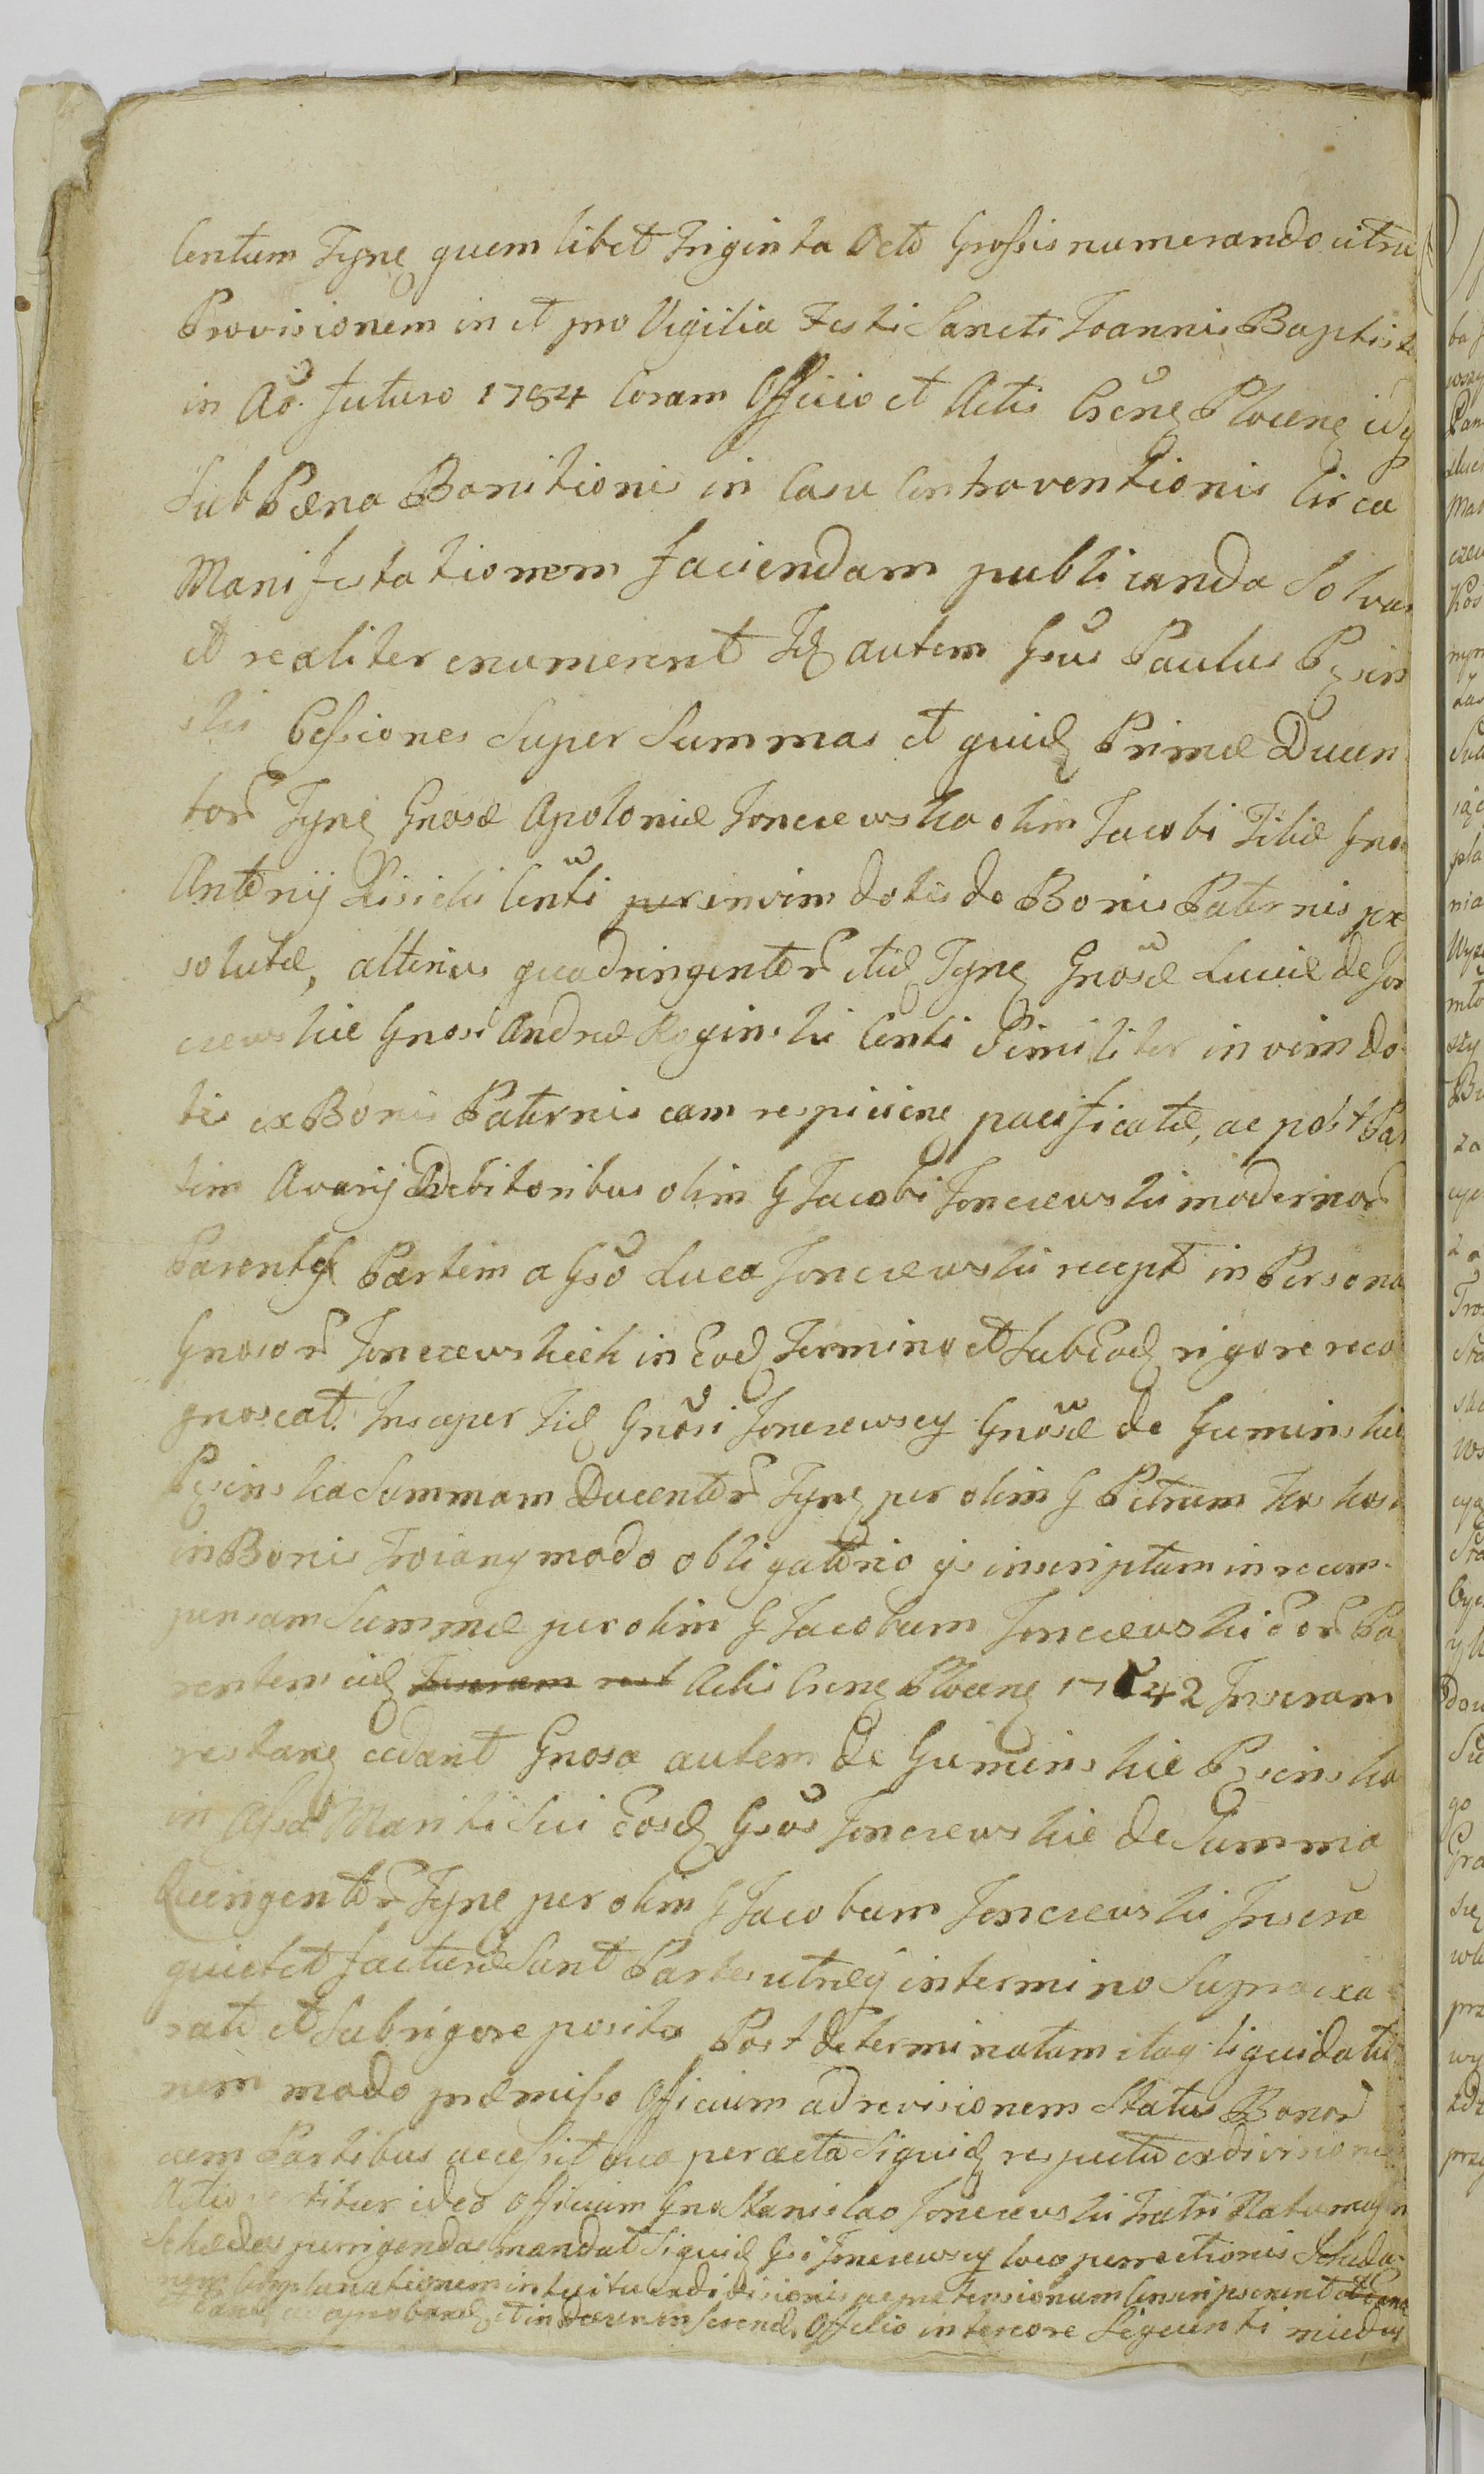 Centum Tyne quemlibet Triginta Octo Grossis numerando citra
Provisionem in et pro Vigilia Festi Sancti Joannis Baptistæ
in Ao. futuro 1784 Coram Officio et Actis Crēng Ploceng idq
Sub Pæna Banitionis in Casu Contraventionis Circa
Manifestationem faciendam publicanda Solvan
et realiter enumerent Id autem Gsus Paulus
Cessiones Super Summas et quid Primæ Ducen
tor Tyne Gnosæ Apoloniæ Jonczewska olim Jacobi Filiæ Gno
Antonij Lisicki Conti per invim dotis de Bonis Paternis ex
solutæ, alterius quadringentor itid Tyne Gnosæ Luciæ de Jon
czewskie Gnosi Andreæ Roginski Conti Similiter in vim do
tis ex Bonis Paternis eam respicieng pacificatæ, ac post Par
tim Debitoribus olim G Jacobi Jonczewski modernor
Parentis Partim a Gso Luca Jonczewski recept in Persona
Gnosor Jonczewskich in Eod Termino et Sub Eod rigore reco
gnoscat. Insuper Iid Gnosi Jonczewscy Gnosæ de Guminskie
Summam Ducentor Tyne per olim G Petrum
in Bonis Troiany modo obligatorio ijs inscriptam in recom
pensam Summæ per olim G Jacobum Jonczewski Eor Pa
rentem eid Actis Creng Ploceng 1742 Inscram
restang cedant Gnosa autem de Guminskie
in Assa Mariti Sui Eosd Gsos Jonczewskie de Summa
Quingentor Tyne per olim G Jacobum Jonczewski Inscra
quietet facturæ Sunt Partes utræq in termino Supra exa
rato et Sub rigore posito Post determinatam itaq liquidatio
nem modo præmisso Officium ad revisionem Status Bonor
cum Partibus accessit qua peracta Siquid respectu exdivisione
Actio ideo Officium Gno Stanislao Jonczewski Fratri Natu maj
Schædas porrigendas mandat Siquid Gsi Jonczewscy loco porrectionis Scheda
rum Complanationem intuitu exdivisionis ac prætensionum Conscripserunt
et approband et in Decretum inserend. Officio in tenore Sequenti